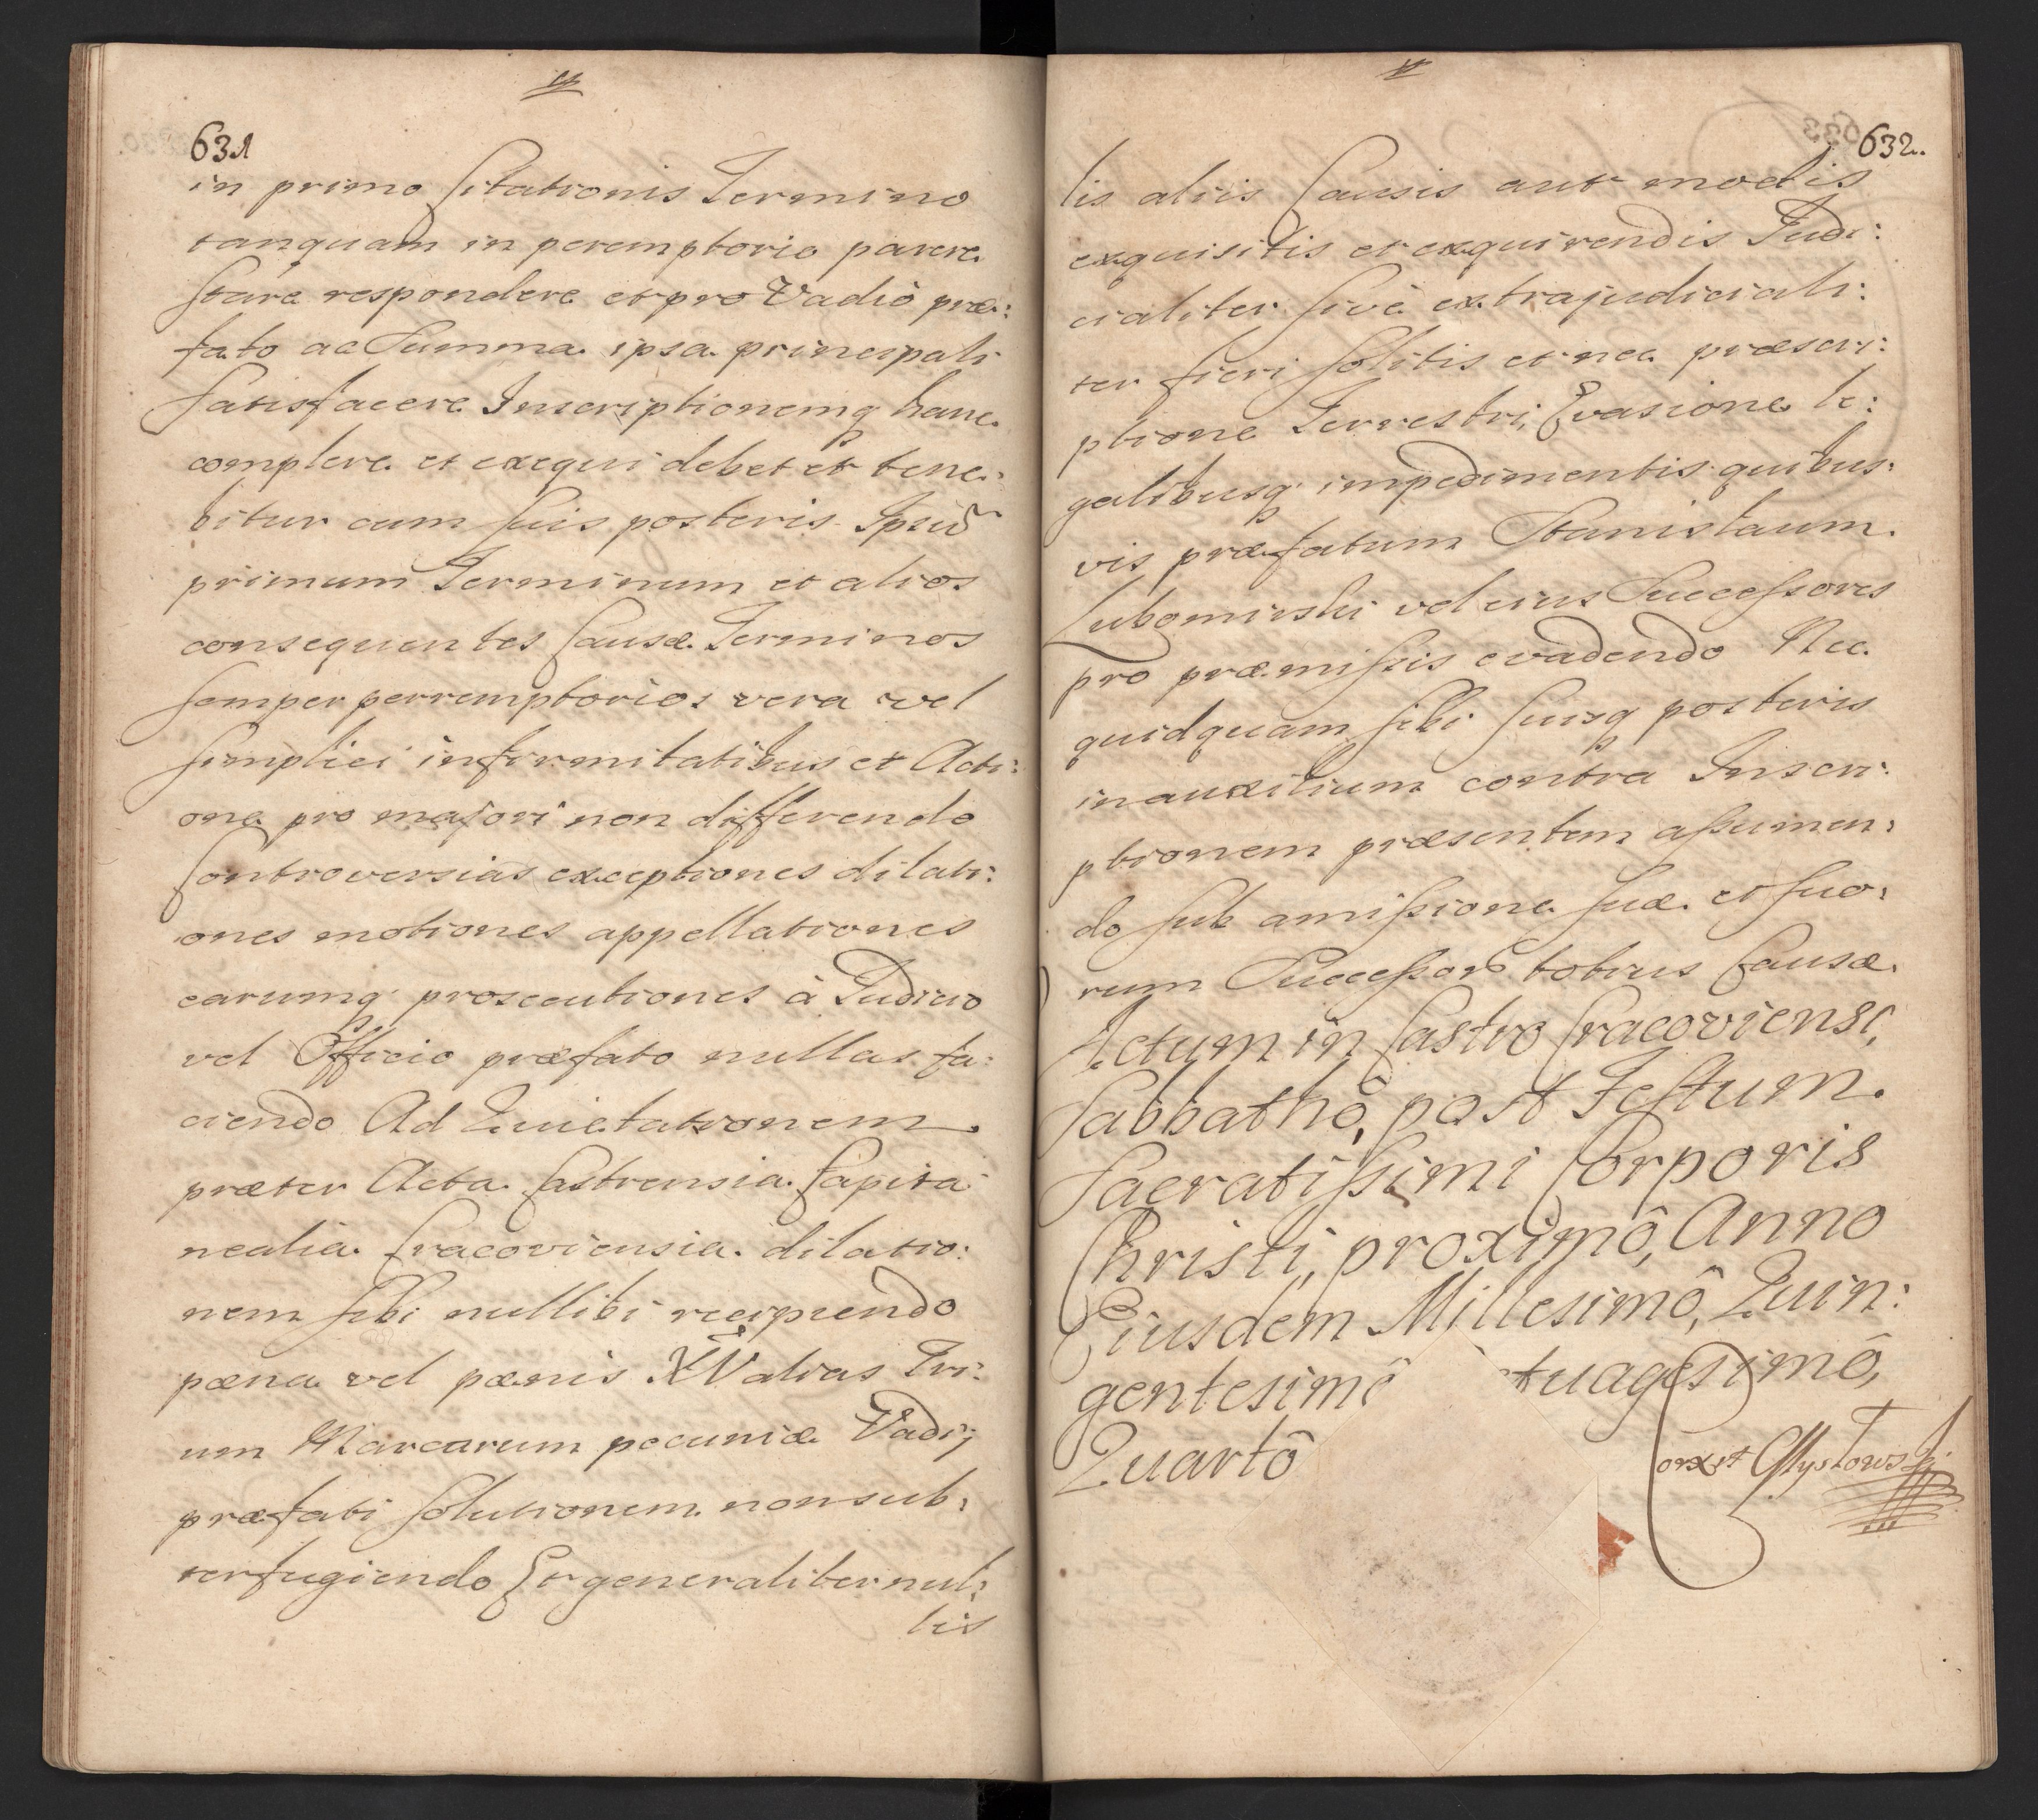 631
in primo Citationis Termino
tanquam in peremptorio parere
stare respondere et pro Vadiô præ:
fato ac Summa ipsa principali
satisfacere Inscriptionemq hanc
complere et exequi debet et tene:
bitur cum suis posteris Ipsũ
primum Terminum et alios
consequentes Causæ Terminos
semper perremptorios vera vel
simplici infirmitatibus et Acti:
one pro majori non differendo
Controversias exceptiones dilati:
ones motiones appellationes
earumq prosecutiones à Judicio
vel Officio præfato nullas fa:
ciendo Ad Quietationem
præter Acta Castrensia Capita
nealia Cracoviensia dilatio:
nem sibi nullibi recipiendo
pæna vel pænis XV alias Tri:
um Marcarum pecuniæ Vadij
præfati solutionem non sub:
terfugiendo Et generaliter nul:
lis
632.
lis aliis Causis aut modis
exquisitis et exquirendis Judi:
cialiter sivè extrajudiciali:
ter fieri solitis et nec præscri:
ptione Terrestri, Evasione le:
galibusq impedimentis quibus:
vis præfatum Stanislaum
Lubomirski vel eius Successores
pro præmissis evadendo Nec
quidquam sibi suisq posteris
in auxilium contra Inscri:
ptionem præsentem assumen:
do sub amissione suæ et suo:
rum Successorũ totius Causæ
Actum in Castro Cracoviensi,
Sabbathô, post Festum
Sacratissimi Corporis
Christi, proximô, Anno
Eiusdem Millesimô, Quin:
gentesimô tuagesimô,
Quartô